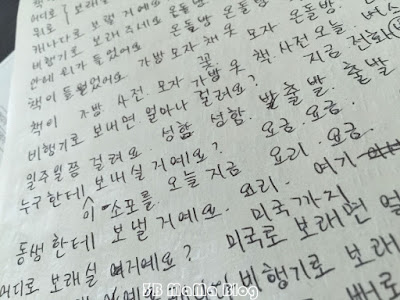 어디로 보래
뒤로
캐나다로 보낼 거예요 온돌방 온돌방
비행기로 보래 주세요 온돌방 온돌방
안에 뭐가 들었어요 가방 모자 채 우 모자 온돌방
책이 들었었어요 꽃. 책. 사전 오늘. 버스
책이 가방. 사전. 모자 가방 우 지금 전화
비행기로 보내면 얼마나 걸려요?
일주일쯤 걸려요. 성함 성함. 발 출발. 출발
누구한테 보내실 거예요? 요금 요금.
이 소포를. 오늘 지금 요리. 요금
동생 한테 보낼 거예요. 요리. 여기
어디로 보래실 거예요? 미국까지
미국로 보래면 얼
비행기로 보래
SB MaMa Blog